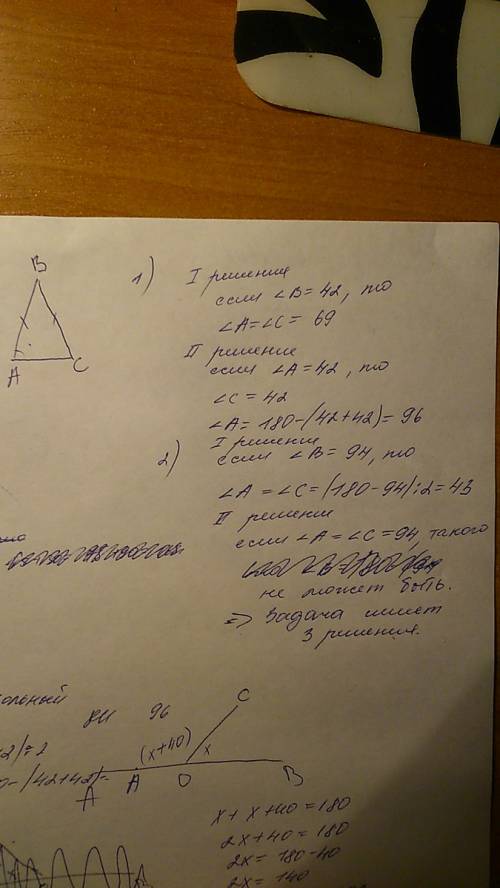 B
A
C
1) I решение
если ∠B=42, то
∠A=∠C= 69
II решение
если ∠A=42, то
∠C = 42
∠A= 180-(42+42)= 96
2) I решение
если ∠B= 94, то
∠A = ∠C= (180-94):2=43
II решение
если ∠A=∠C=94 такого
не может быть.
=> Задача имеет
3 решения.
96
C
(x+40)
x
A
A
O
B
x+x+40=180
2x+40=180
2x= 180-40
2x= 140